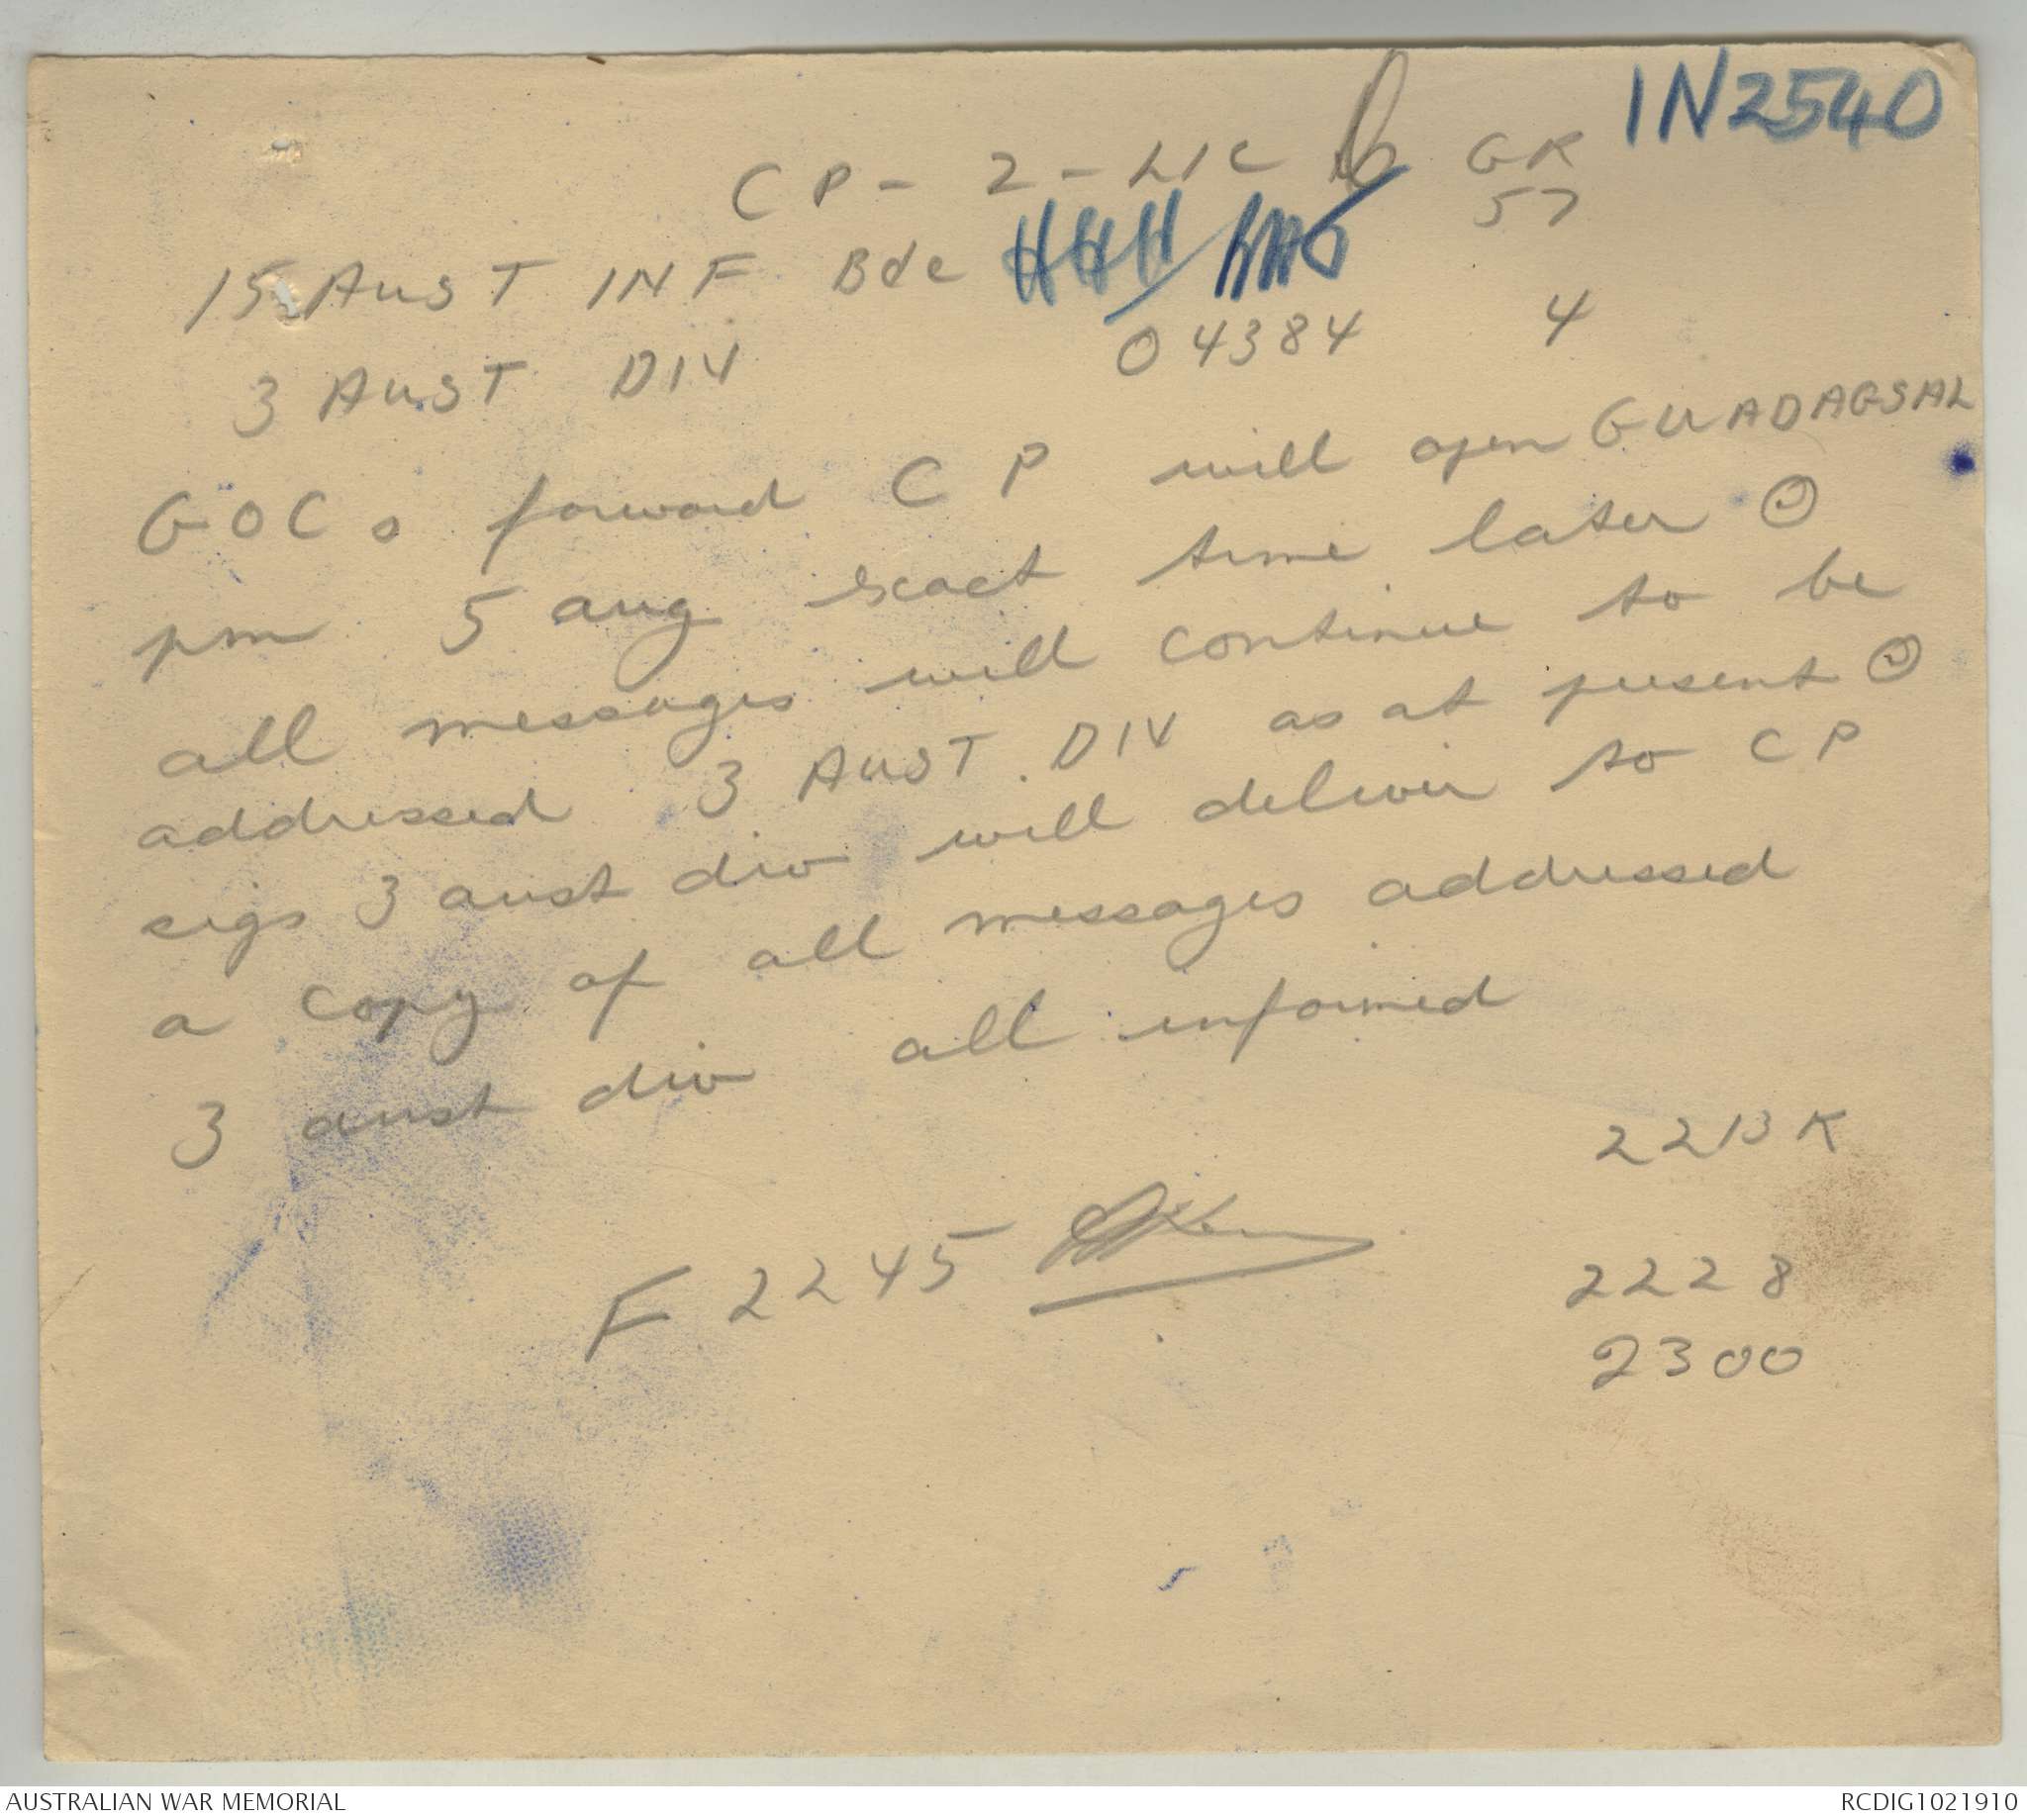 IN2540
CP - 2 - LIC GR
57
15 AUST INF Bde
3 AUST DIV 04384 4
GOCs forward CP will open GUADAGSAL
pm 5 aug exact time later ⊙
all messages will continue to be
addressed 3 AUST. DIV as at present ⊙
sigs 3 aust div will deliver to CP
a copy of all messages addressed
3 aust div all informed
2213K
F 2245
2228
2300
AUSTRALIAN WAR MEMORIAL RCDIG1021910